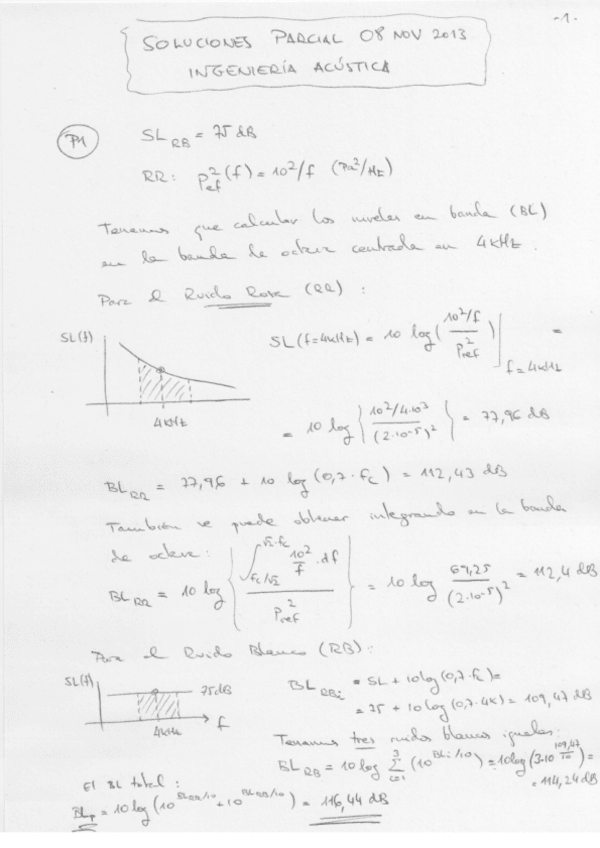 -1-
SOLUCIONES PARCIAL 08 NOV 2013
INGENIERÍA ACÚSTICA
P1
SL_RB = 75 dB
RR: P²_ef(f) = 10²/f (Pa²/Hz)
Tenemos que calcular los niveles en banda (BL)
en la banda de octava centrada en 4 kHz.
Para el Ruido Rosa (RR):
SL(f)
4kHz
SL(f=4kHz) = 10 log(10²/f / P²_ref)|_f=4kHz =
= 10 log{10²/4·10³ / (2·10⁻⁵)²} = 77,96 dB
BL_RR = 77,96 + 10 log(0,7·fc) = 112,43 dB
También se puede obtener integrando en la banda
de octava:
BL_RR = 10 log{∫_{fc/√2}^{√2·fc} 10²/f · df / P²_ref} = 10 log 69,25 / (2·10⁻⁵)² = 112,4 dB
Para el Ruido Blanco (RB):
SL(f)
75dB
f
4kHz
BL_RBi = SL + 10log(0,7·fc) =
= 75 + 10 log(0,7·4K) = 109,47 dB
Tenemos tres ruidos blancos iguales:
BL_RB = 10 log Σ_{i=1}^{3} (10^{BLi/10}) = 10log(3·10^{109,47/10}) =
= 114,24 dB
El BL total:
BL_T = 10 log(10^{BL_RR/10} + 10^{BL_RB/10}) = 116,44 dB